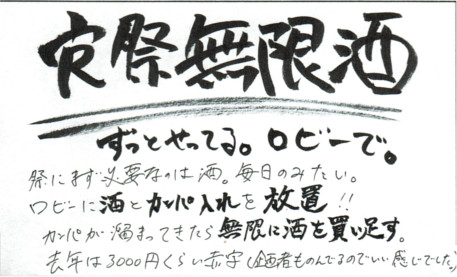 穴祭無限酒
ずっとやってる。ロビーで。
祭にまず必要なのは酒。毎日のみたい。
ロビーに酒とカンパ入れを放置!!
カンパが溜まってきたら無限に酒を買い足す。
去年は3000円くらい赤字(企画者ものんでるのでいい感じでした)